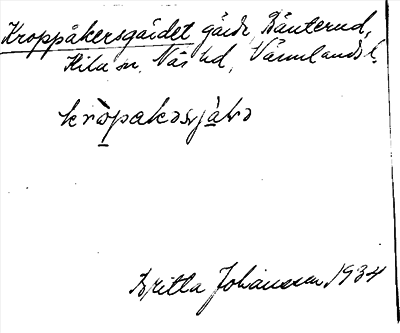 Kroppåkersgärdet gärde, Bänterud,
Kila sn, Näs hd, Värmlands l.
kròpakəsjàɫə
Britta Johansson 1934